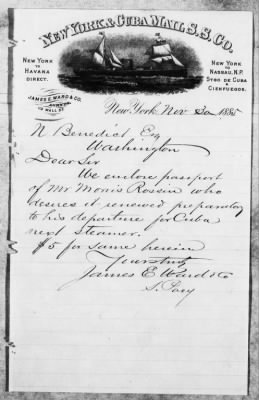 NEW YORK & CUBA MAIL S.S. CO.
NEW YORK
TO
HAVANA
DIRECT.
JAMES E. WARD & CO.
113 WALL ST.
NEW YORK
TO
NASSAU, N.P.
STGO DE CUBA
&
CIENFUEGOS.
New York, Nov 30 1885
N Benedict Esq
Washington
Dear Sir
We enclose passport
of Mr Morris Rossin who
desires it renewed preparatory
to his departure for Cuba
next steamer.
$5 for same herein
Yours truly
James E Ward & Co